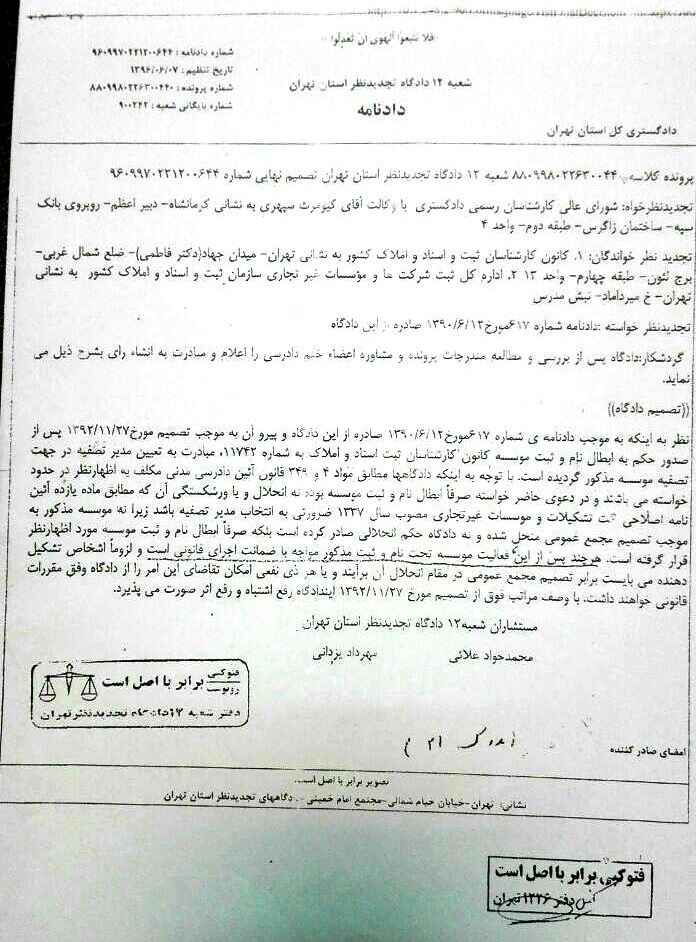 فلا تتبعوا الهوی ان تعدلوا
شماره دادنامه : ۹۶۰۹۹۷۰۲۲۱۲۰۰۶۴۴
تاریخ تنظیم : ۱۳۹۶/۰۶/۰۷
شماره پرونده : ۸۸۰۹۹۸۰۲۲۶۳۰۰۴۴۰
شماره بایگانی شعبه : ۹۰۰۲۴۲
شعبه ۱۲ دادگاه تجدیدنظر استان تهران
دادنامه
دادگستری کل استان تهران
پرونده کلاسه ۸۸۰۹۹۸۰۲۲۶۳۰۰۴۴ شعبه ۱۲ دادگاه تجدیدنظر استان تهران تصمیم نهایی شماره ۹۶۰۹۹۷۰۲۲۱۲۰۰۶۴۴
تجدیدنظرخواه: شورای عالی کارشناسان رسمی دادگستری با وکالت آقای کیومرث سپهری به نشانی کرمانشاه- دبیر اعظم- روبروی بانک
سپه- ساختمان زاگرس- طبقه دوم- واحد ۴
تجدید نظر خواندگان: ۱. کانون کارشناسان ثبت و اسناد و املاک کشور به نشانی تهران- میدان جهاد(دکتر فاطمی)- ضلع شمال غربی-
برج لئون- طبقه چهارم- واحد ۱۳ ۲. اداره کل ثبت شرکت ها و مؤسسات غیر تجاری سازمان ثبت و اسناد و املاک کشور به نشانی
تهران- خ میرداماد- نبش مدرس
تجدیدنظر خواسته :دادنامه شماره ۶۱۷مورخ۱۳۹۰/۶/۱۲ صادره از این دادگاه
گردشکار:دادگاه پس از بررسی و مطالعه مندرجات پرونده و مشاوره اعضاء ختم دادرسی را اعلام و مبادرت به انشاء رای بشرح ذیل می
نماید.
((تصمیم دادگاه))
نظر به اینکه به موجب دادنامه ی شماره ۶۱۷مورخ۱۳۹۰/۶/۱۲ صادره از این دادگاه و پیرو آن به موجب تصمیم مورخ۱۳۹۲/۱۱/۲۷ پس از
صدور حکم به ابطال نام و ثبت موسسه کانون کارشناسان ثبت اسناد و املاک به شماره ۱۱۷۴۲، مبادرت به تعیین مدیر تصفیه در جهت
تصفیه موسسه مذکور گردیده است. با توجه به اینکه دادگاهها مطابق مواد ۴ و ۳۴۹ قانون آئین دادرسی مدنی مکلف به اظهارنظر در حدود
خواسته می باشند و در دعوی حاضر خواسته صرفاً ابطال نام و ثبت موسسه بوده نه انحلال و یا ورشکستگی آن که مطابق ماده یازده آئین
نامه اصلاحی ثبت تشکیلات و موسسات غیرتجاری مصوب سال ۱۳۳۷ ضرورتی به انتخاب مدیر تصفیه باشد زیرا نه موسسه مذکور به
موجب تصمیم مجمع عمومی منحل شده و نه دادگاه حکم انحلالی صادر کرده است بلکه صرفاً ابطال نام و ثبت موسسه مورد اظهارنظر
قرار گرفته است. هرچند پس از این فعالیت موسسه تحت نام و ثبت مذکور مواجه با ضمانت اجرای قانونی است و لزوماً اشخاص تشکیل
دهنده می بایست برابر تصمیم مجمع عمومی در مقام انحلال آن برآیند و یا هر ذی نفعی امکان تقاضای این امر را از دادگاه وفق مقررات
قانونی خواهند داشت. با وصف مراتب فوق از تصمیم مورخ ۱۳۹۲/۱۱/۲۷ ایندادگاه رفع اشتباه و رفع اثر صورت می پذیرد.
مستشاران شعبه۱۲ دادگاه تجدیدنظر استان تهران
محمدجواد علائی
مهرداد یزدانی
فتوکپی
رونوشت
برابر با اصل است
دفتر شعبه ۱۲ دادگاه تجدیدنظر تهران
امضای صادر کننده
تصویر برابر با اصل است.
نشانی: تهران-خیابان خیام شمالی-مجتمع امام خمینی- دادگاههای تجدیدنظر استان تهران
فتوکپی برابر با اصل است
دفتر ۱۲۲۶ تهران